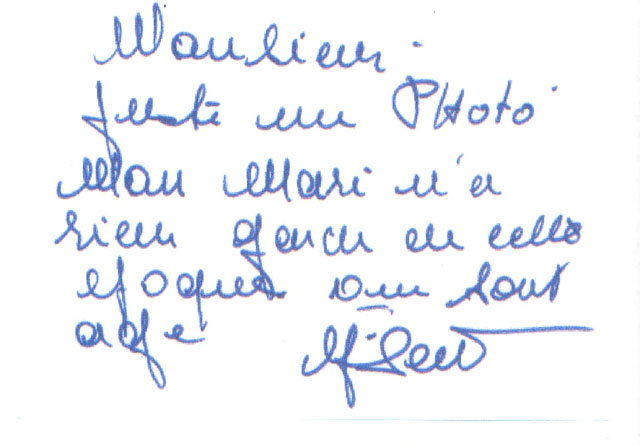 Monsieur
Juste un PHoto
Mon Mari n'a
rien garde de cette
epoque on sont
age